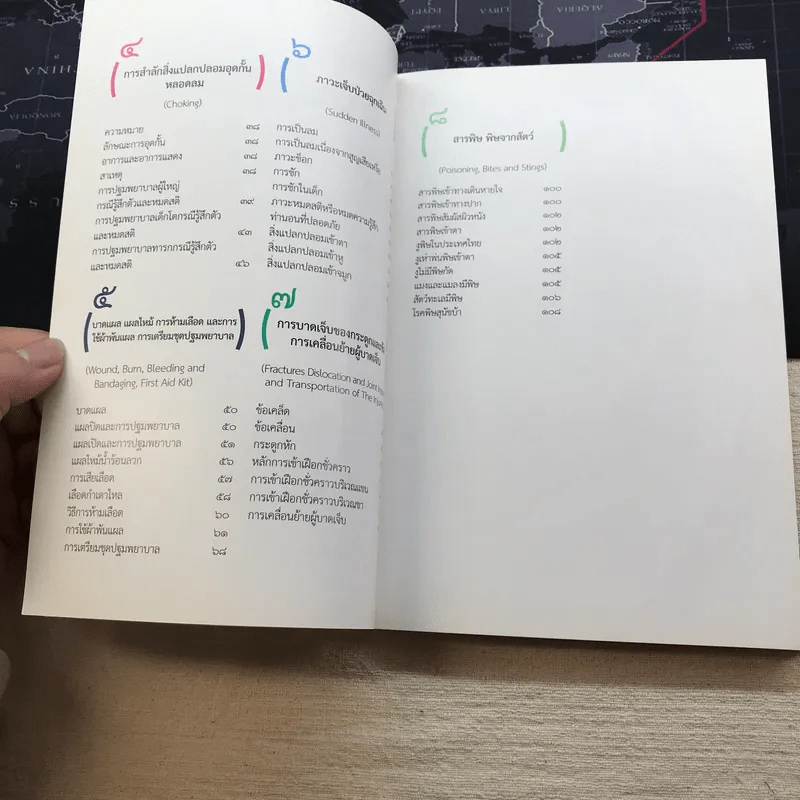 ๔
การสำลักสิ่งแปลกปลอมอุดกั้น
หลอดลม
(Choking)
ความหมาย ๓๘
ลักษณะการอุดกั้น ๓๘
อาการและอาการแสดง ๓๘
สาเหตุ ๓๘
การปฐมพยาบาลผู้ใหญ่
กรณีรู้สึกตัวและหมดสติ ๓๙
การปฐมพยาบาลเด็กโตกรณีรู้สึกตัว
และหมดสติ ๔๓
การปฐมพยาบาลทารกกรณีรู้สึกตัว
และหมดสติ ๔๖
๕
บาดแผล แผลไหม้ การห้ามเลือด และการ
ใช้ผ้าพันแผล การเตรียมชุดปฐมพยาบาล
(Wound, Burn, Bleeding and
Bandaging, First Aid Kit)
บาดแผล ๕๐
แผลปิดและการปฐมพยาบาล ๕๐
แผลเปิดและการปฐมพยาบาล ๕๑
แผลไหม้น้ำร้อนลวก ๕๖
การเสียเลือด ๕๗
เลือดกำเดาไหล ๕๘
วิธีการห้ามเลือด ๖๐
การใช้ผ้าพันแผล ๖๑
การเตรียมชุดปฐมพยาบาล ๖๘
๖
ภาวะเจ็บป่วยฉุกเฉิน
(Sudden Illness)
การเป็นลม
การเป็นลมเนื่องจากสูญเสียเหงื่อ
ภาวะช็อก
การชัก
การชักในเด็ก
ภาวะหมดสติหรือหมดความรู้สึก
ท่านอนที่ปลอดภัย
สิ่งแปลกปลอมเข้าตา
สิ่งแปลกปลอมเข้าหู
สิ่งแปลกปลอมเข้าจมูก
๗
การบาดเจ็บของกระดูกและข้อ
การเคลื่อนย้ายผู้บาดเจ็บ
(Fractures Dislocation and Joint
and Transportation of The
ข้อเคล็ด
ข้อเคลื่อน
กระดูกหัก
หลักการเข้าเฝือกชั่วคราว
การเข้าเฝือกชั่วคราวบริเวณแขน
การเข้าเฝือกชั่วคราวบริเวณขา
การเคลื่อนย้ายผู้บาดเจ็บ
๘
สารพิษ พิษจากสัตว์
(Poisoning, Bites and Stings)
สารพิษเข้าทางเดินหายใจ ๑๐๐
สารพิษเข้าทางปาก ๑๐๑
สารพิษสัมผัสผิวหนัง ๑๐๒
สารพิษเข้าตา ๑๐๒
งูพิษในประเทศไทย ๑๐๒
งูเห่าพ่นพิษเข้าตา ๑๐๕
งูไม่มีพิษกัด ๑๐๕
แมงและแมลงมีพิษ ๑๐๕
สัตว์ทะเลมีพิษ ๑๐๖
โรคพิษสุนัขบ้า ๑๐๘
CHINA
MONGOLIA
ALGERIA
MOROCCO